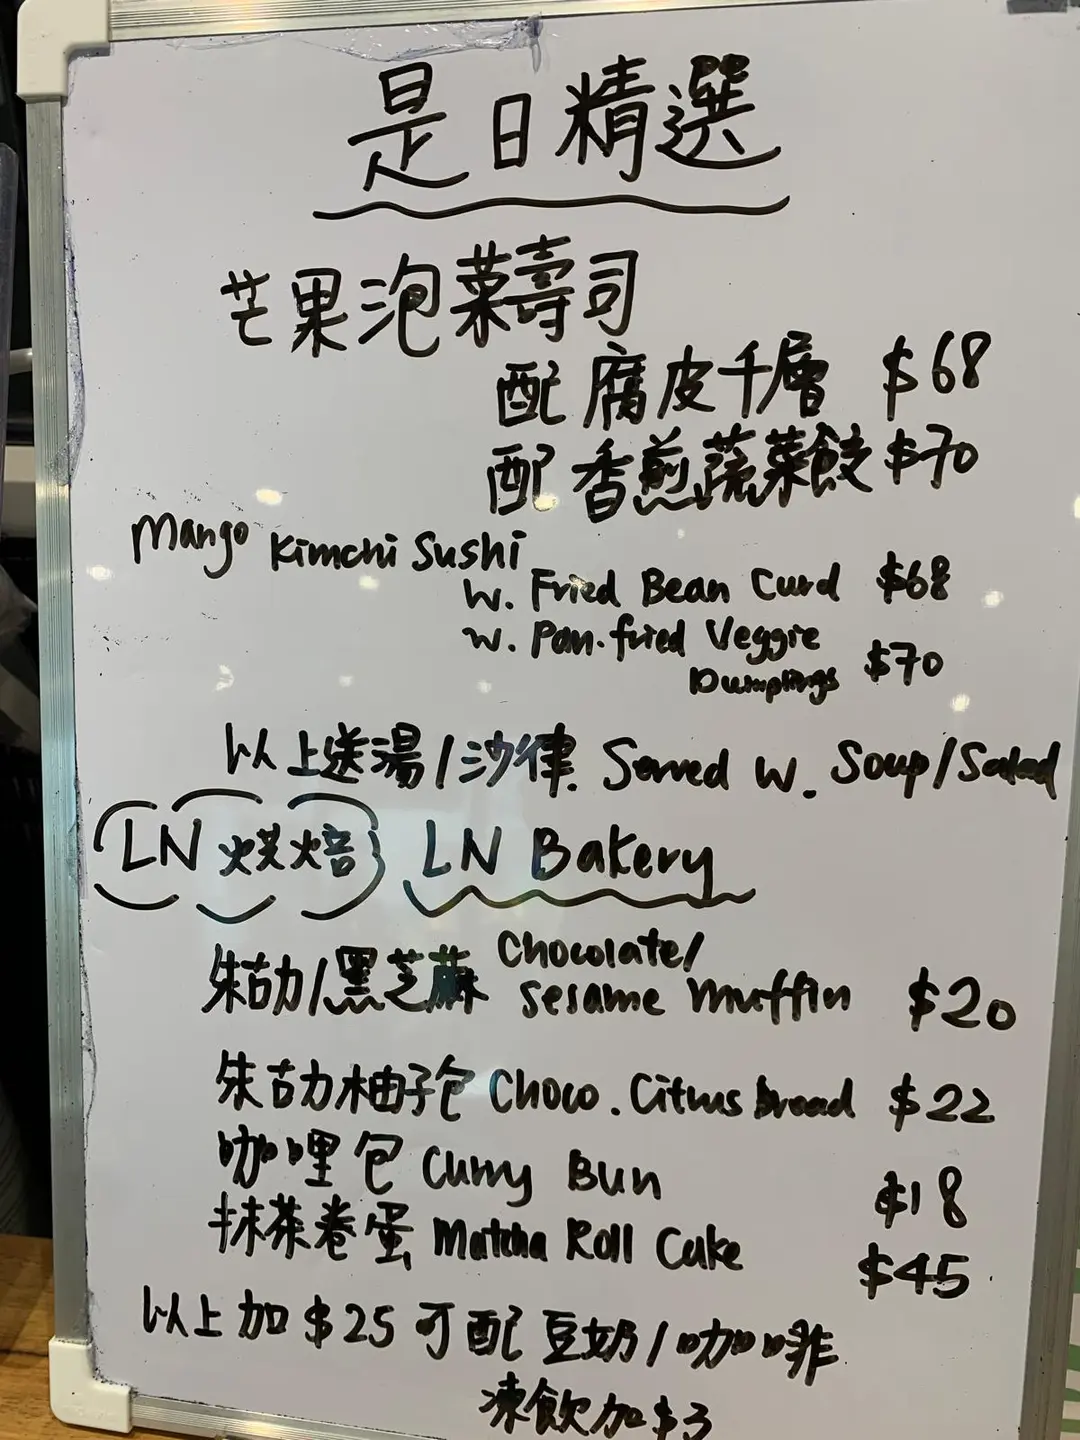 是日精選
芒果泡菜壽司
配腐皮千層 $68
配香煎蔬菜餃 $70
Mango Kimchi Sushi
w. Fried Bean Curd $68
w. Pan-fried Veggie
Dumplings $70
以上送湯/沙律. Served w. Soup/Salad
LN 烘焙 LN Bakery
朱古力/黑芝麻 Chocolate/
Sesame muffin $20
朱古力柚子包 Choco. Citrus bread $22
咖哩包 Curry Bun $18
抹茶卷蛋 Matcha Roll Cake $45
以上加 $25 可配豆奶/咖啡
凍飲加 $3